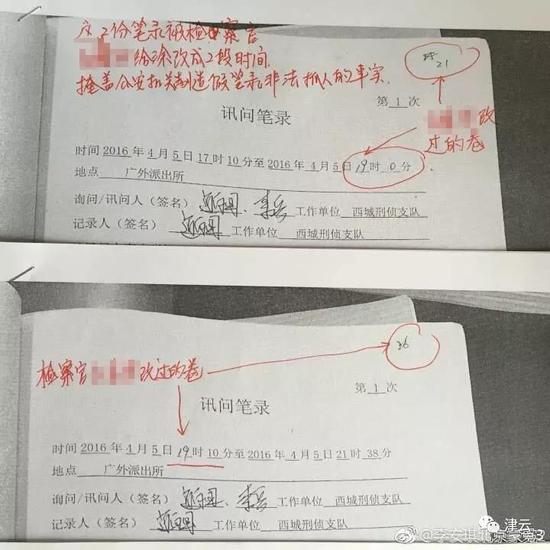 这2份笔录被检察官
给涂改成2段时间.
掩盖公安机关制造假笔录非法抓人的事实
21
改
过的卷
第 1 次
讯问笔录
时间 2016 年 4 月 5 日 17 时 10 分至 2016 年 4 月 5 日 19 时 0 分
地点 广外派出所
询问/讯问人（签名） 工作单位 西城刑侦支队
记录人（签名） 工作单位 西城刑侦支队
26
检察官 改过的卷
第 1 次
讯问笔录
时间 2016 年 4 月 5 日 19 时 10 分至 2016 年 4 月 5 日 21 时 38 分
地点 广外派出所
询问/讯问人（签名） 工作单位 西城刑侦支队
记录人（签名） 工作单位 西城刑侦支队
津云